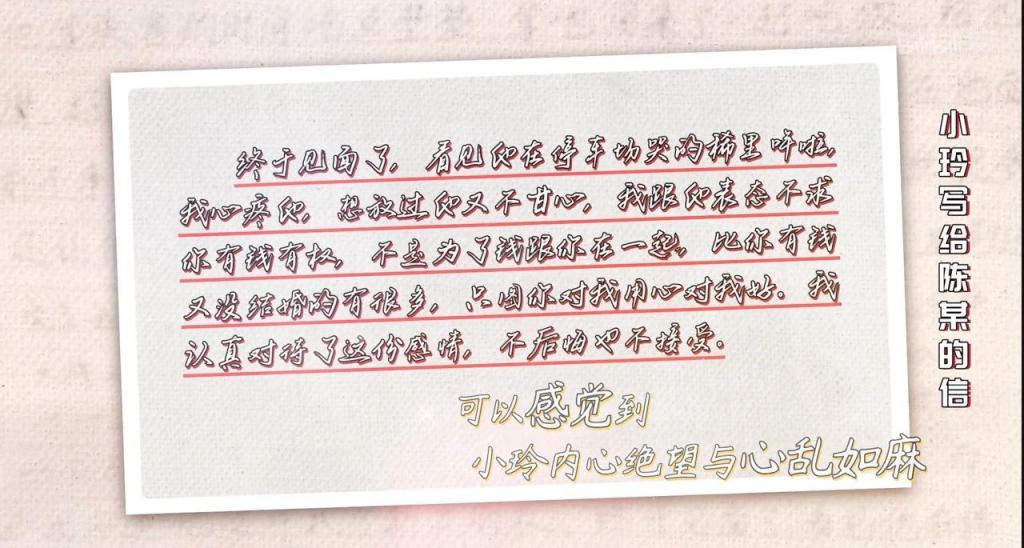 终于见面了，看见你在停车场哭的稀里哗啦，
我心疼你，想放过你又不甘心，我跟你表态不求
你有钱有权，不是为了钱跟你在一起，比你有钱
又没结婚的有很多，只图你对我用心对我好．我
认真对待了这份感情，不后悔也不接受．
可以感觉到
小玲内心绝望与心乱如麻
小玲写给陈某的信